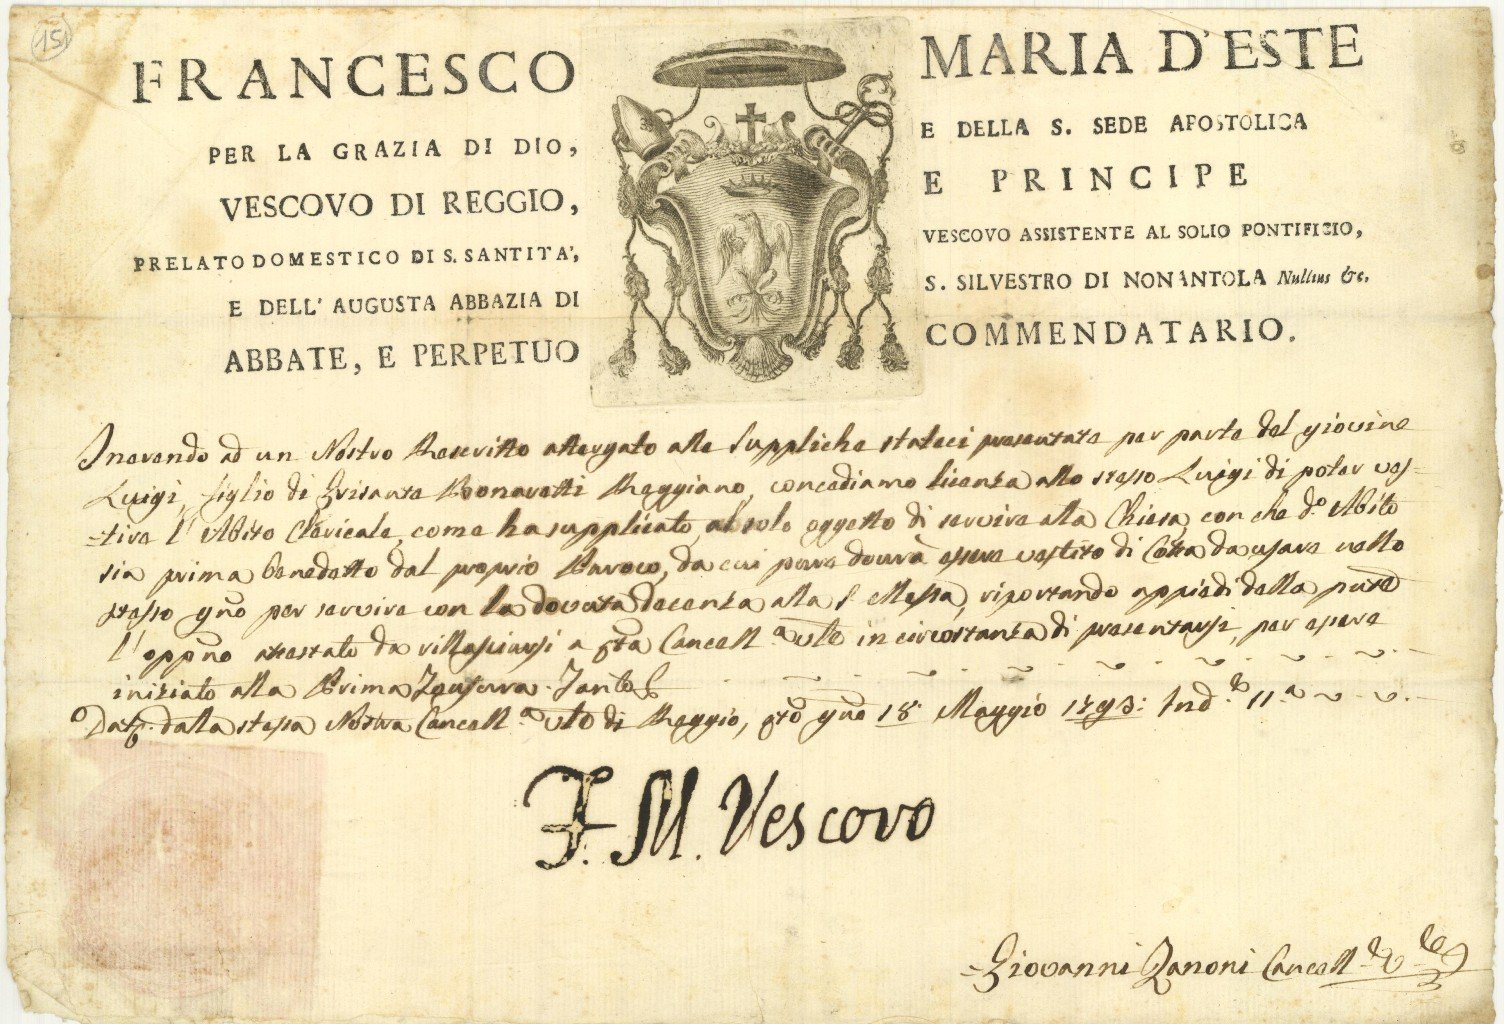 151
FRANCESCO MARIA D'ESTE
PER LA GRAZIA DI DIO, E DELLA S. SEDE APOSTOLICA
VESCOVO DI REGGIO, E PRINCIPE
PRELATO DOMESTICO DI S. SANTITA', VESCOVO ASSISTENTE AL SOLIO PONTIFIZIO,
E DELL' AUGUSTA ABBAZIA DI S. SILVESTRO DI NONANTOLA Nullius &c.
ABBATE, E PERPETUO COMMENDATARIO.
Inerendo ad un Nostro Rescritto attergato alle suppliche stateci presentate per parte del giovine
Luigi, figlio di Grisante Bonaretti Reggiano, concediamo licenza allo stesso Luigi di poter ves-
-tire l'Abito Clericale, come ha supplicato, al solo oggetto di servire alla Chiesa, con che do. Abito
sia prima benedetto dal proprio Paroco, da cui pure dovrà essere vestito di Cotta da usare nello
stesso gno per servire con la dovuta decenza alla S. Messa, riportando appiedi della pnte
l'oppno attestato da rillasciarsi a qta Cancella Vle in circostanza di presentarsi, per essere
iniziato alla Prima Tonsura.
Dat. dalla stessa Nostra Cancella Vle di Reggio, qto gno 18 Maggio 1793: Indo. 11a
F. M. Vescovo
Giovanni Zanoni Cancell